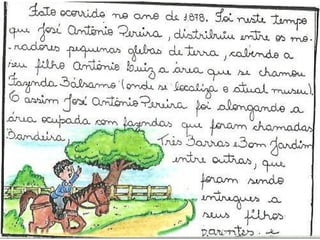 Fato ocorrido no ano de 1878. Foi neste tempo
que José Antônio Pereira, distribuiu entre os mo-
radores pequenas glebas de terra, cabendo a
seu filho Antônio Luiz a área que se chamou
Fazenda Bálsamo (onde se localiza o atual museu).
E assim José Antônio Pereira foi alongando a
área ocupada com fazendas que foram chamadas
Bandeira, Três Barras e Bom Jardim
entre outras, que
foram sendo
entregues a
seus filhos
parentes e